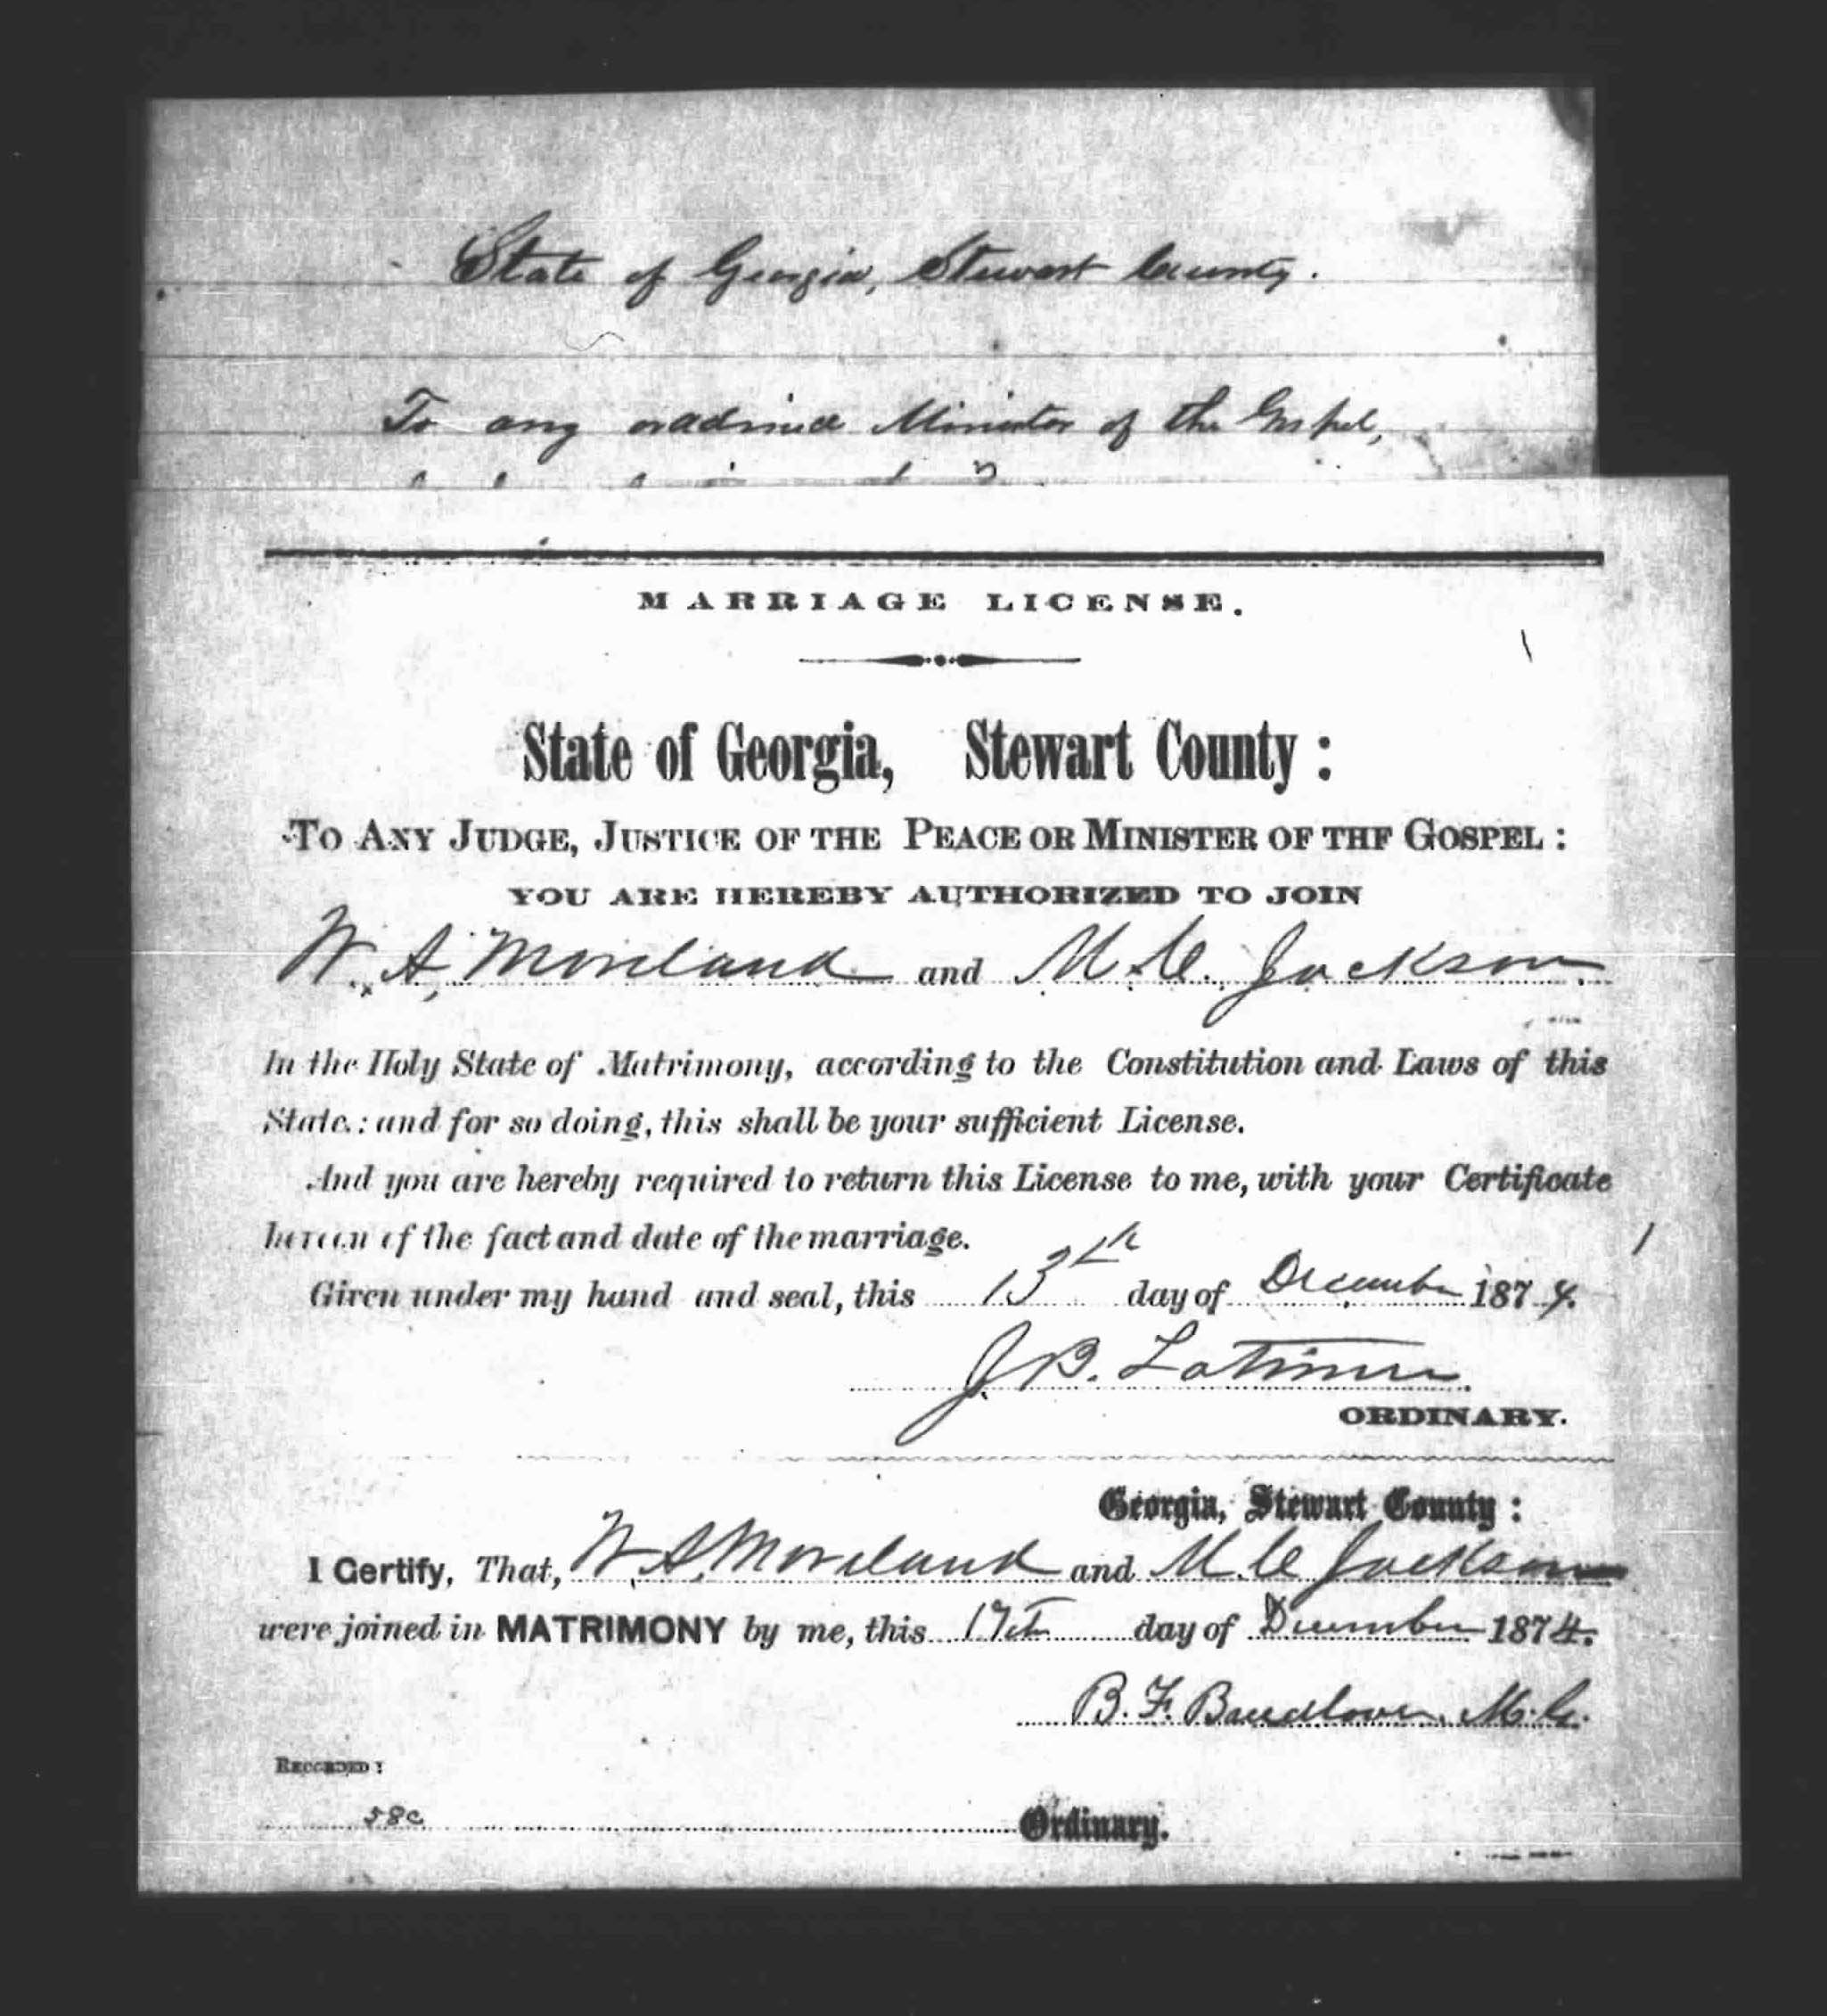 State of Georgia, Stewart County.
To any ordained Minister of the Gospel,
MARRIAGE LICENSE.
State of Georgia, Stewart County:
TO ANY JUDGE, JUSTICE OF THE PEACE OR MINISTER OF THE GOSPEL:
YOU ARE HEREBY AUTHORIZED TO JOIN
W. A. Moreland and M. C. Jackson.
In the Holy State of Matrimony, according to the Constitution and Laws of this
State.: and for so doing, this shall be your sufficient License.
And you are hereby required to return this License to me, with your Certificate
hereon of the fact and date of the marriage.
Given under my hand and seal, this 13th day of December 1874.
J. B. Latimer.
ORDINARY.
Georgia, Stewart County:
I Certify, That, W. A. Moreland and M. C. Jackson
were joined in MATRIMONY by me, this 17th day of December 1874.
B. F. M. G.
RECORDED:
58c
Ordinary.